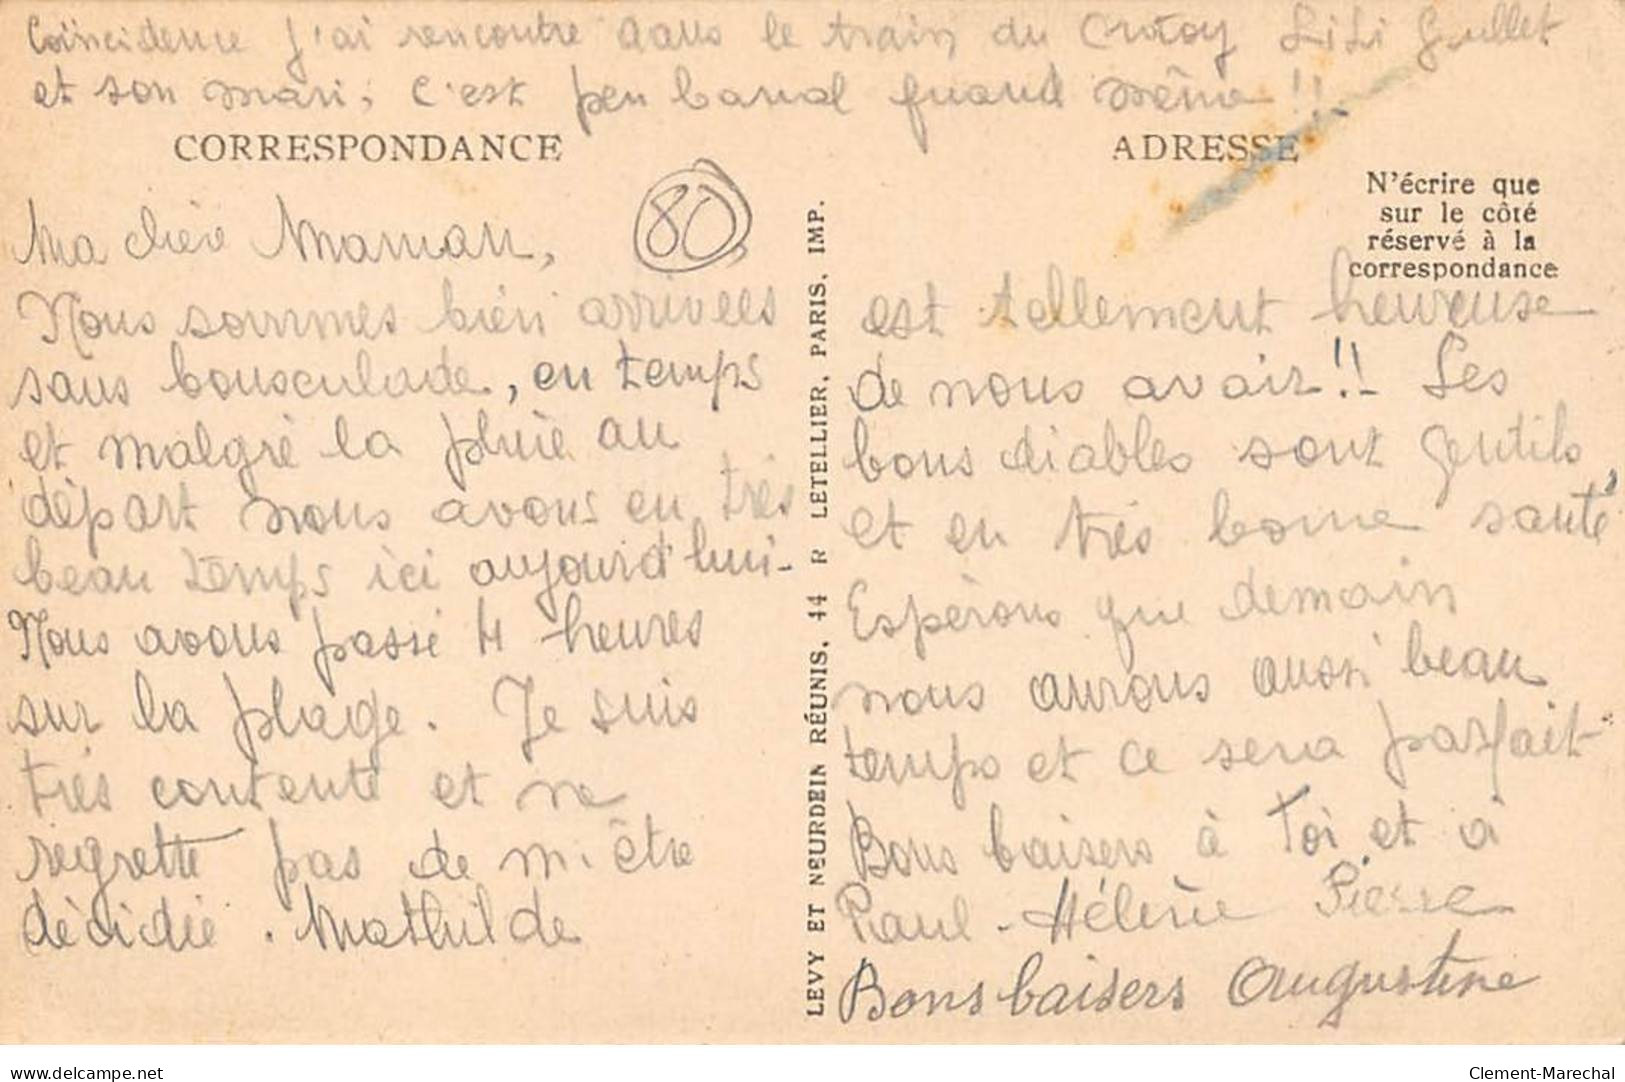 Coïncidence j'ai rencontré dans le train du Crotoy LiLi Gullet
et son mari, c'est peu banal quand même !!.
CORRESPONDANCE
80
Ma chère Maman,
Nous sommes bien arrivées
sans bousculade, en temps
et malgré la pluie au
départ nous avons eu très
beau temps ici aujourd'hui-
Nous avons passé 4 heures
sur la plage. Je suis
très contente et ne
regrette pas de m'être
décidée. Mathilde
LEVY ET NEURDEIN RÉUNIS, 44 R LETELLIER, PARIS, IMP.
ADRESSE
N'écrire que
sur le côté
réservé à la
correspondance
est tellement heureuse
de nous avoir!! Les
bons diables sont gentils,
et en très bonne santé
Espérons que demain
nous aurons aussi beau
temps et ce sera parfait-
Bons baisers à Toi et à
Paul - Hélène Pierre
Bons baisers Augustine
www.delcampe.net
Clement-Marechal